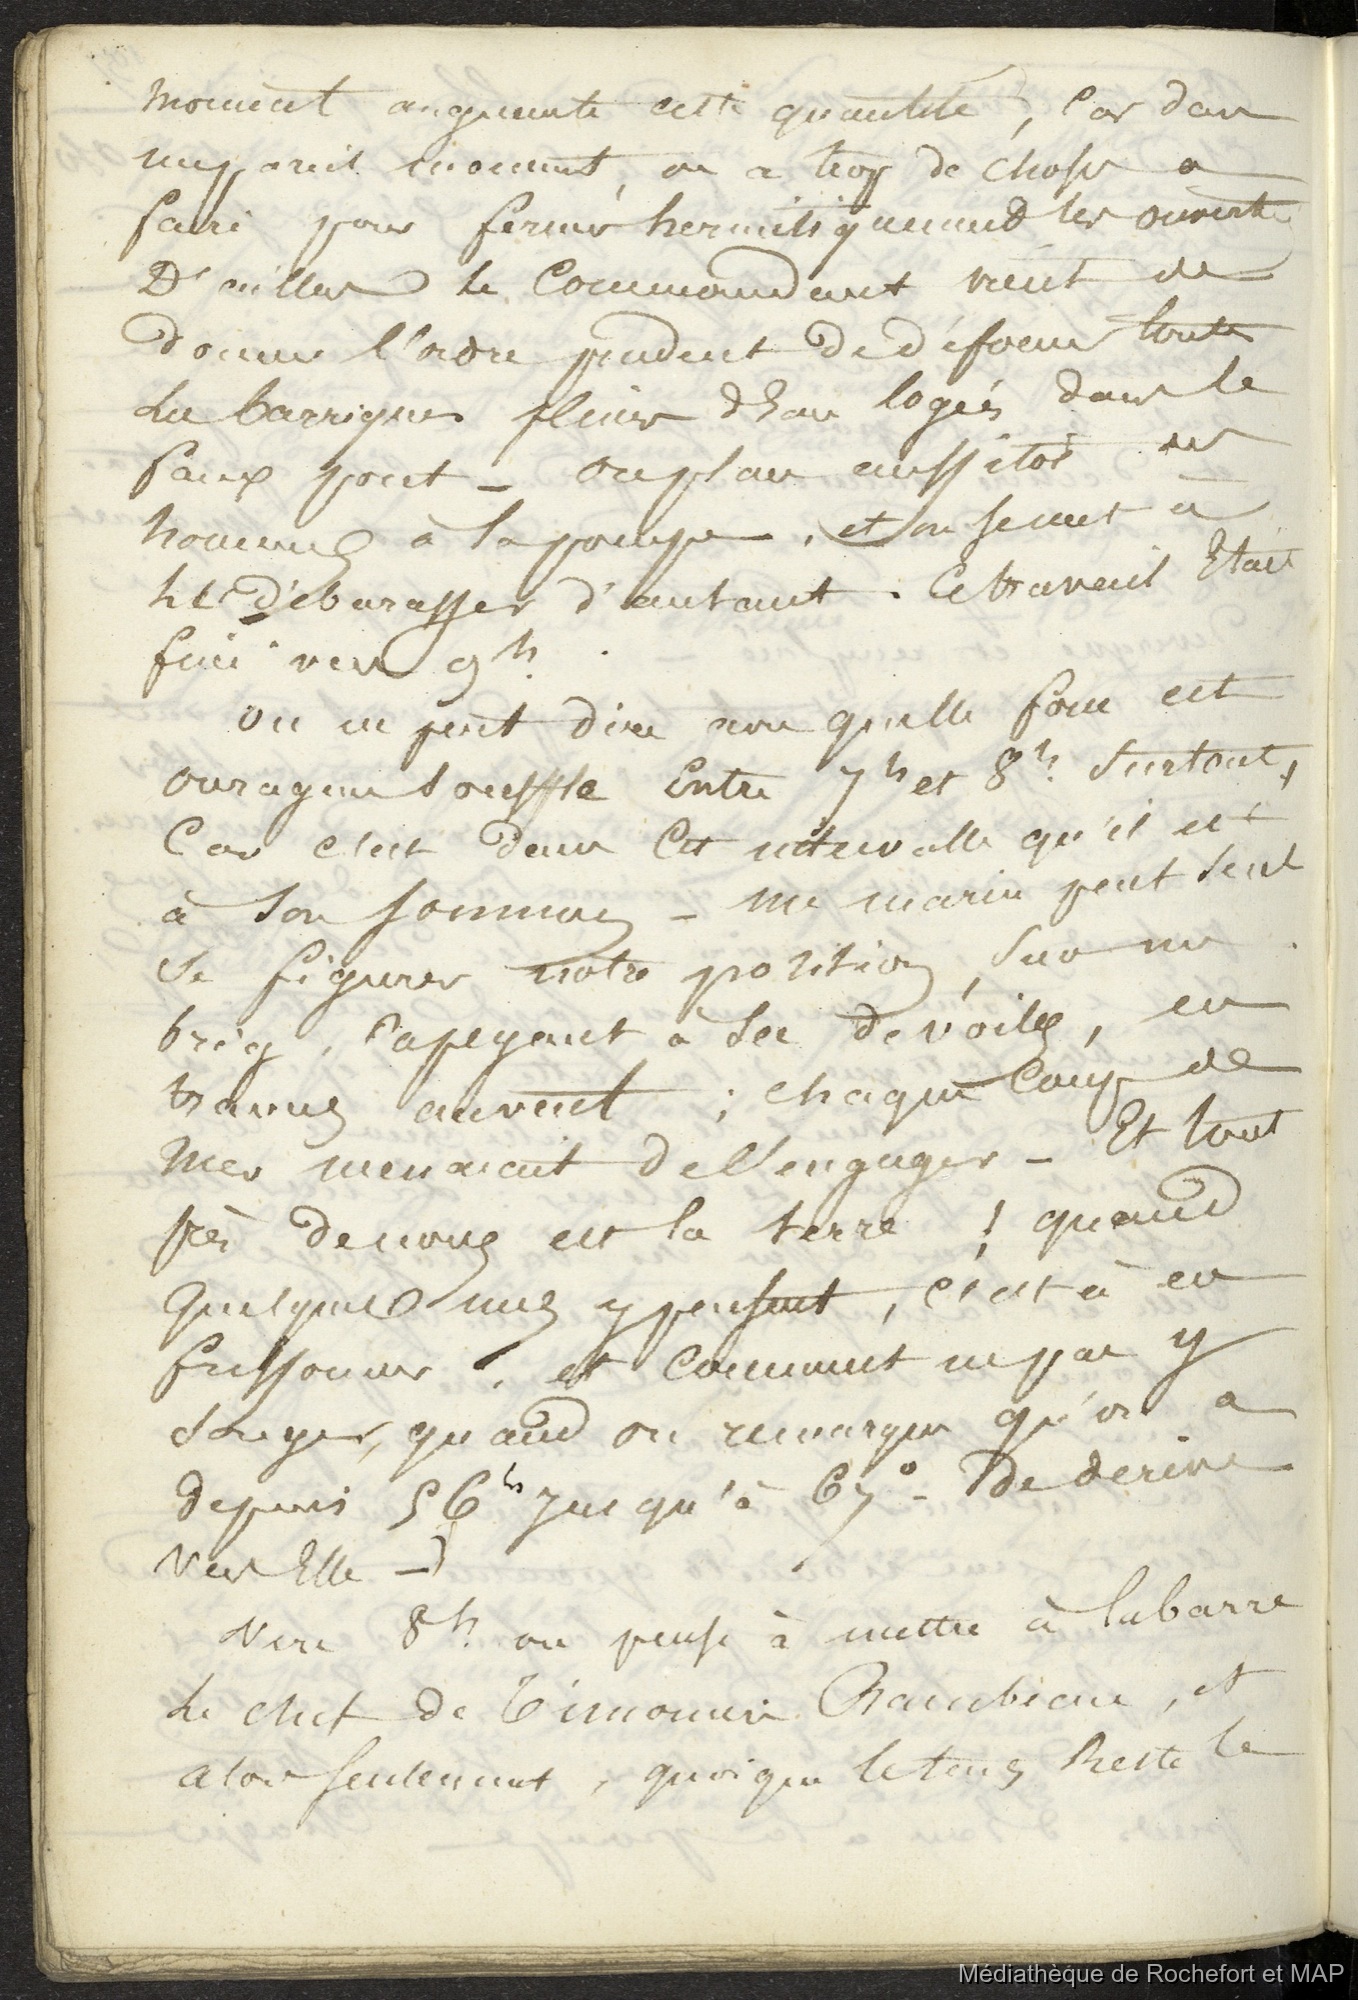 moment augmente cette quantité, Car dans
un pareil moment, on a trop de choses a
faire pour fermer hermétiquement les ouvert.
D'ailleurs le Commandant vient de
donner l'ordre prudent de défoncer toutes
les barriques pleines d'Eau logées dans le
faux pont _ on place aussitôt des
hommes à la pompe, et on se met à
les débarasser d'autant. Ce travail Etait
fini vers 9h.
on ne peut dire avec quelle force cet
ouragan souffle Entre 7h et 8h. Surtout,
Car c'est dans Cet intervalle qu'il est
à son sommet _ un marin peut seul
se figurer notre position, sur un
brig, Capeyant à sec de voiles, en
travers au vent ; chaque Coup de
Mer menacait de l'engager _ Et tout
près de nous est la terre ! quand
quelques uns y pensent, c'est à en
frissonner. et Comment ne pas y
songer, quand on remarque qu'on a
depuis 56h jusqu'à 67° _ de dérive
vers Elle _
Vers 8h. on pense à mettre à la barre
Le chef de timonerie, et
alors seulement, quoique le tems Reste le
Médiathèque de Rochefort et MAP